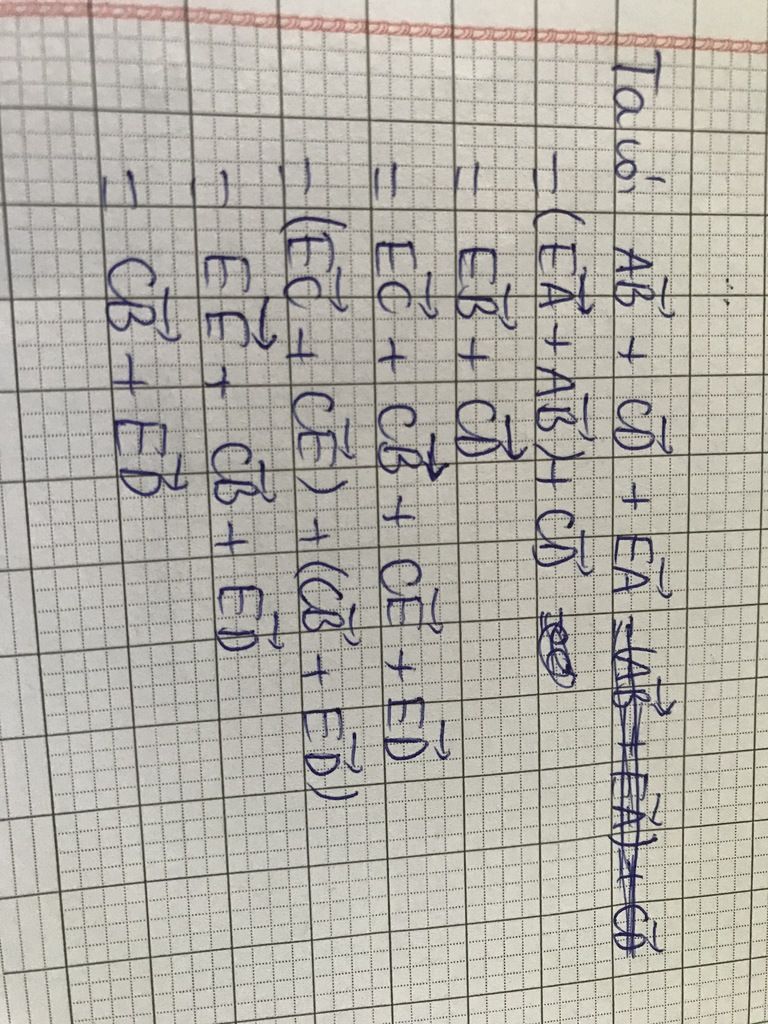 Ta có: AB⃗ + CD⃗ + EA⃗ = (AB⃗ + EA⃗) + CD⃗
= (EA⃗ + AB⃗) + CD⃗
= EB⃗ + CD⃗
= EC⃗ + CB⃗ + CE⃗ + ED⃗
= (EC⃗ + CE⃗) + (CB⃗ + ED⃗)
= EE⃗ + CB⃗ + ED⃗
= CB⃗ + ED⃗